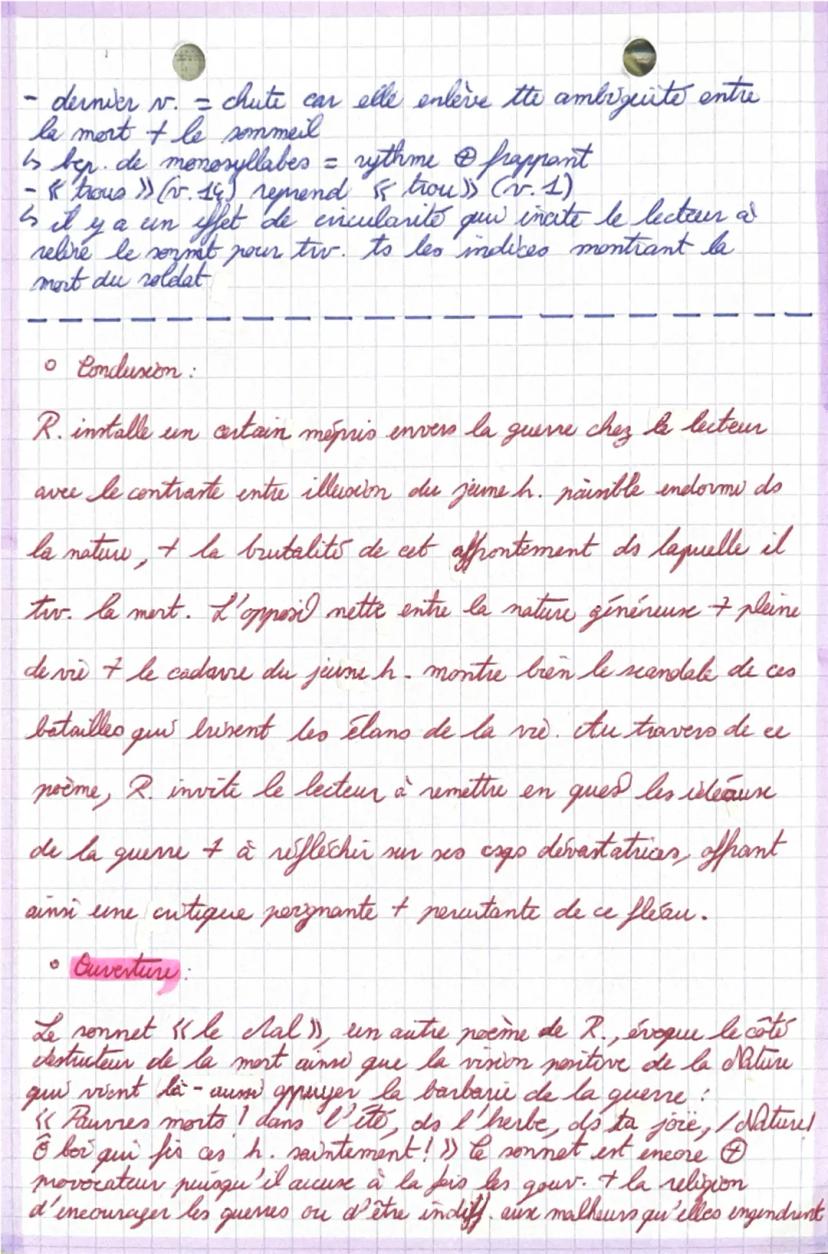 - dernier v. = chute car elle enlève tte ambiguité entre
la mort + le sommeil
↳ bcp. de monosyllabes = rythme ⊕ frappant
- « trous » (v. 14) reprend « trou » (v. 1)
↳ il y a un effet de circularité qui incite le lecteur à
relire le sonnet pour trv. ts les indices montrant la
mort du soldat
° Conclusion :
R. installe un certain mépris envers la guerre chez le lecteur
avec le contraste entre illusion du jeune h. paisible endormi ds
la nature, + la brutalité de cet affrontement ds laquelle il
trv. la mort. L'opposi° nette entre la nature généreuse + pleine
de vie + le cadavre du jeune h. montre bien le scandale de ces
batailles qui brisent les élans de la vie. Au travers de ce
poème, R. invite le lecteur à remettre en ques° les idéaux
de la guerre + à réfléchir sur ses csqs dévastatrices, offrant
ainsi une critique poignante + percutante de ce fléau.
° Ouverture :
Le sonnet « le Mal », un autre poème de R., évoque le côté
destructeur de la mort ainsi que la vision positive de la Nature
qui vient là-aussi appuyer la barbarie de la guerre :
« Pauvres morts ! dans l'été, ds l'herbe, ds ta joie, / Nature !
Ô toi qui fis ces h. saintement ! » Ce sonnet est encore ⊕
provocateur puisqu'il accuse à la fois les gouv. + la religion
d'encourager les guerres ou d'être indiff. aux malheurs qu'elles engendrent